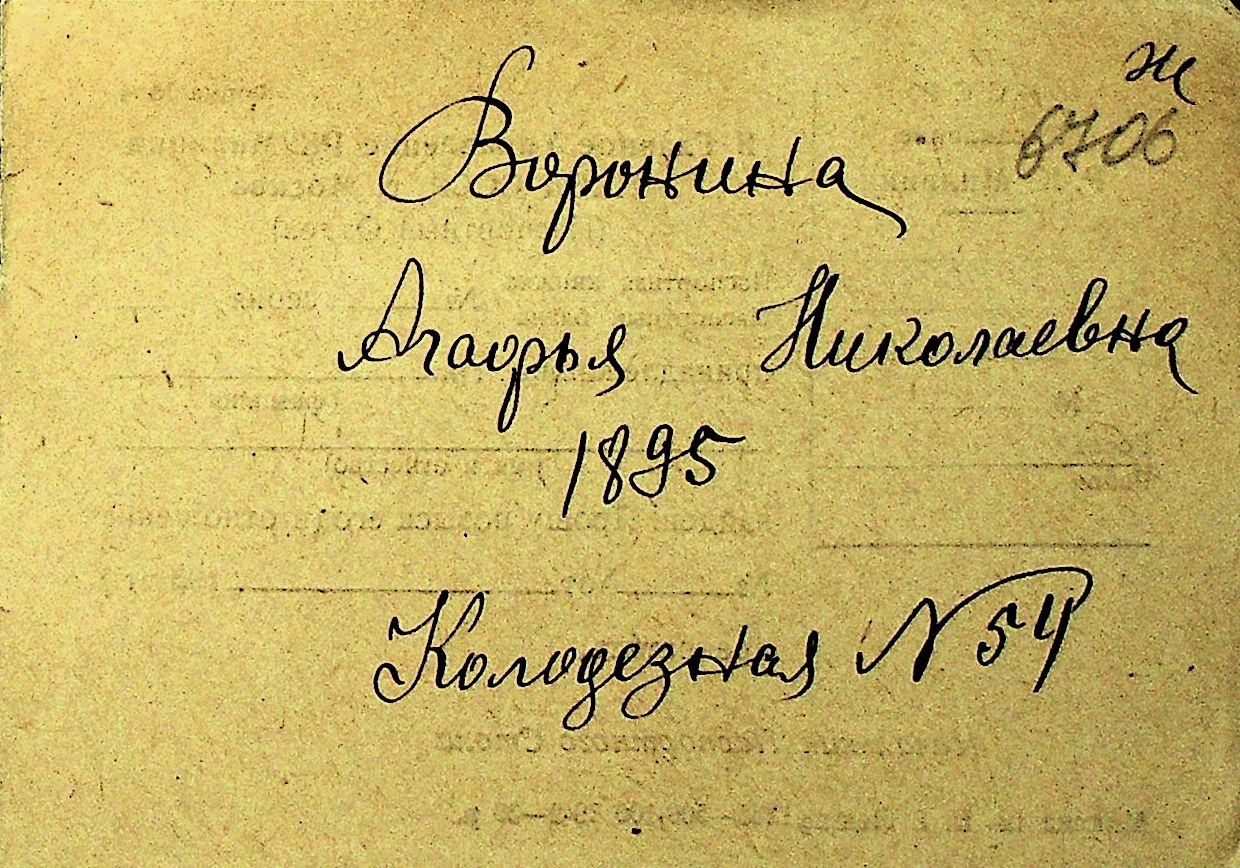 ж
6706
Воронина
Агафья Николаевна
1895
Колодезная N 54